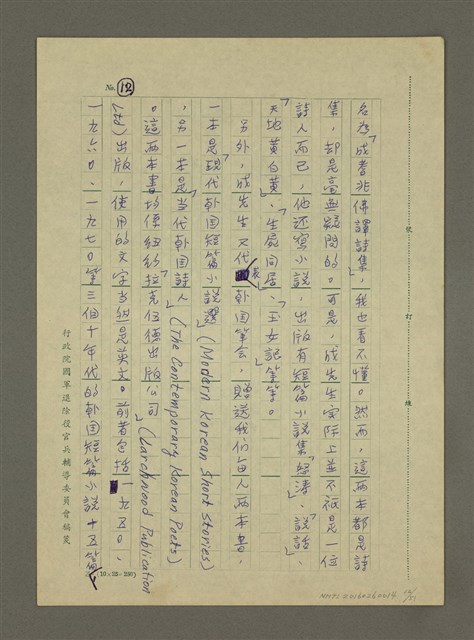 No. 12
名為「成耆兆佛譯詩集」，我也看不懂。然而，這兩本都是詩
集，却是毫無疑問的。可是，成先生实际上並不祇是一位
詩人而已，他还寫小說，出版有短篇小說集「怒濤」、「說話」、
「天地黃白黃」、「生屍同居」、「王女記」等等。
另外，成先生又代表韩国筆会，贈送我们每人两本書，
一本是「現代韩国短篇小說選」(Modern Korean Short Stories)
，另一本是「当代韩国詩人」(The Contemporary Korean Poets)
。這兩本書均係紐約拉克伍德出版公司(Larchwood Publication
Ltd)出版，使用的文字当然是英文。前者包括一九五〇、
一九六〇、一九七〇等三個十年代的韩国短篇小說十五篇，
行政院國軍退除役官兵輔導委員會稿箋
(10×25=250)
裝 訂 線
NMTL20160260014
12/21